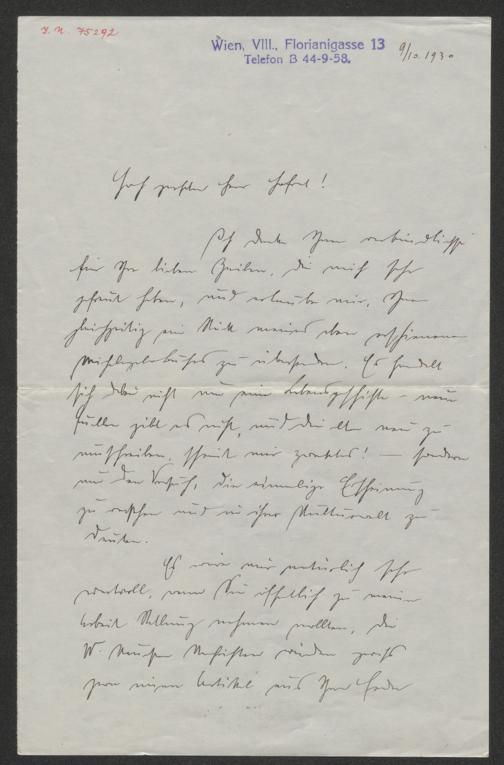 I. N. 75292
Wien, VIII., Florianigasse 13
Telefon B 44-9-58.
9/10. 1930
Hochgeehrter Herr Hofrat!
Ich danke Ihnen verbindlichst
für Ihre lieben Zeilen, die mich sehr
gefreut haben, und erlaube mir, Ihnen
gleichzeitig ein Stück meines eben erschienenen
zu übersenden. Es handelt
sich dabei nicht um eine Lebensgeschichte – neue
Quellen gibt es nicht, und die alten neu zu
umschreiben, scheint mir zwecklos! — sondern
um den Versuch, die einmalige Erscheinung
zu verstehen und in ihrer Kulturwelt zu
deuten.
Es wäre mir natürlich sehr
wertvoll, wenn Sie öffentlich zu meiner
Arbeit Stellung nehmen wollten, die
N. Nachrichten würden gewiss
gern einen Artikel aus Ihrer Feder